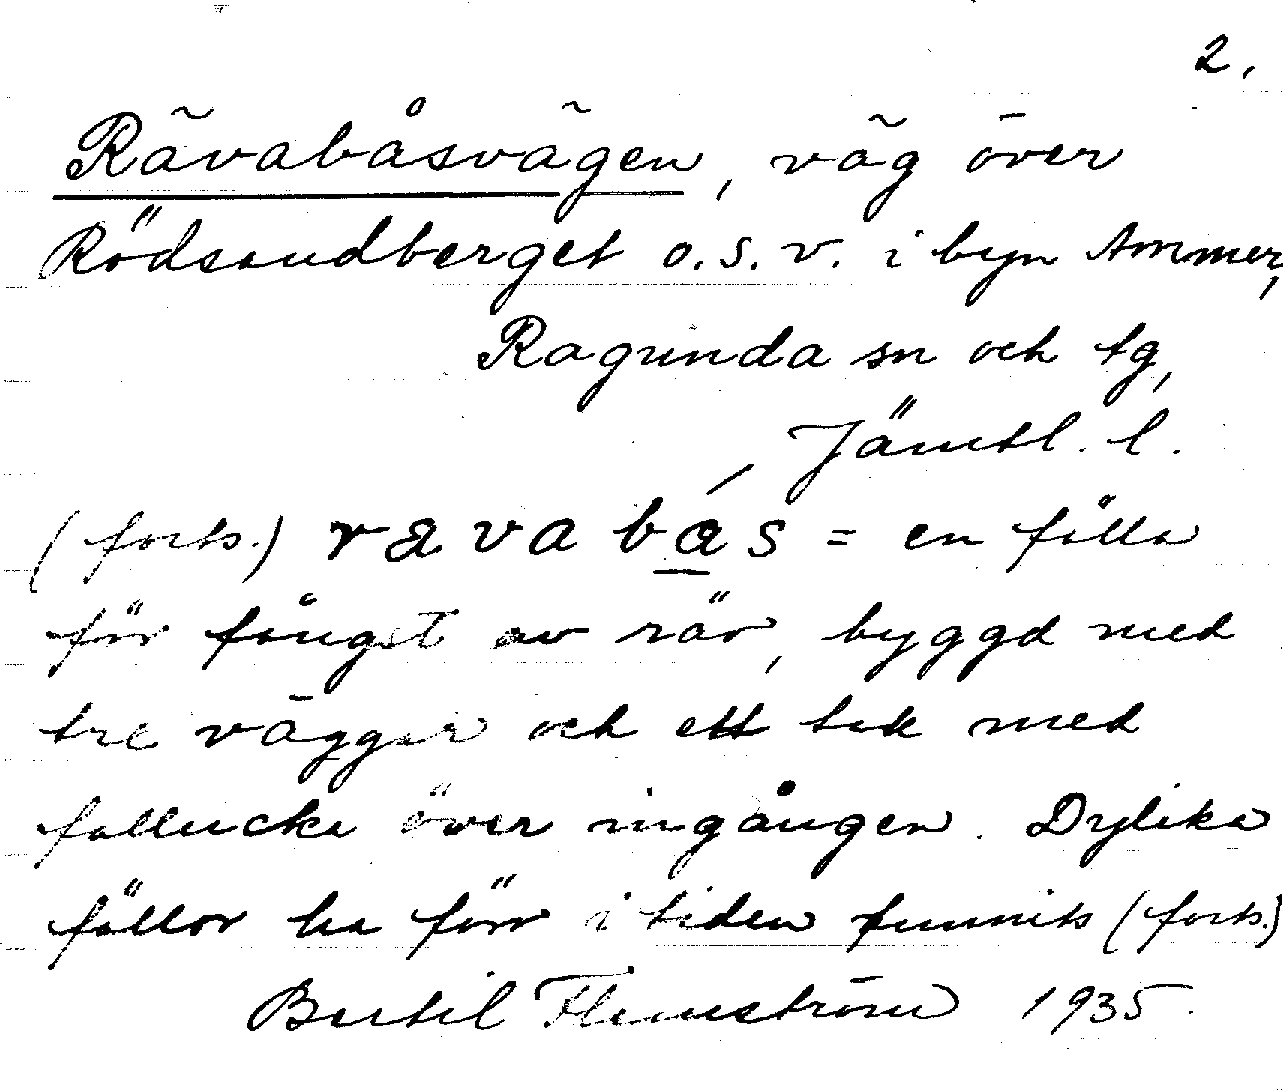 2.
Rävabåsvägen, väg över
Rödsandberget o.s.v. i byn Ammer,
Ragunda sn och tg,
Jämtl. l.
(forts.) ravabás = en fälla
för fångst av räv, byggd med
tre väggar och ett tak med
fallucka över ingången. Dylika
fällor ha förr i tiden funnits (forts.)
Bertil Flemström 1935.